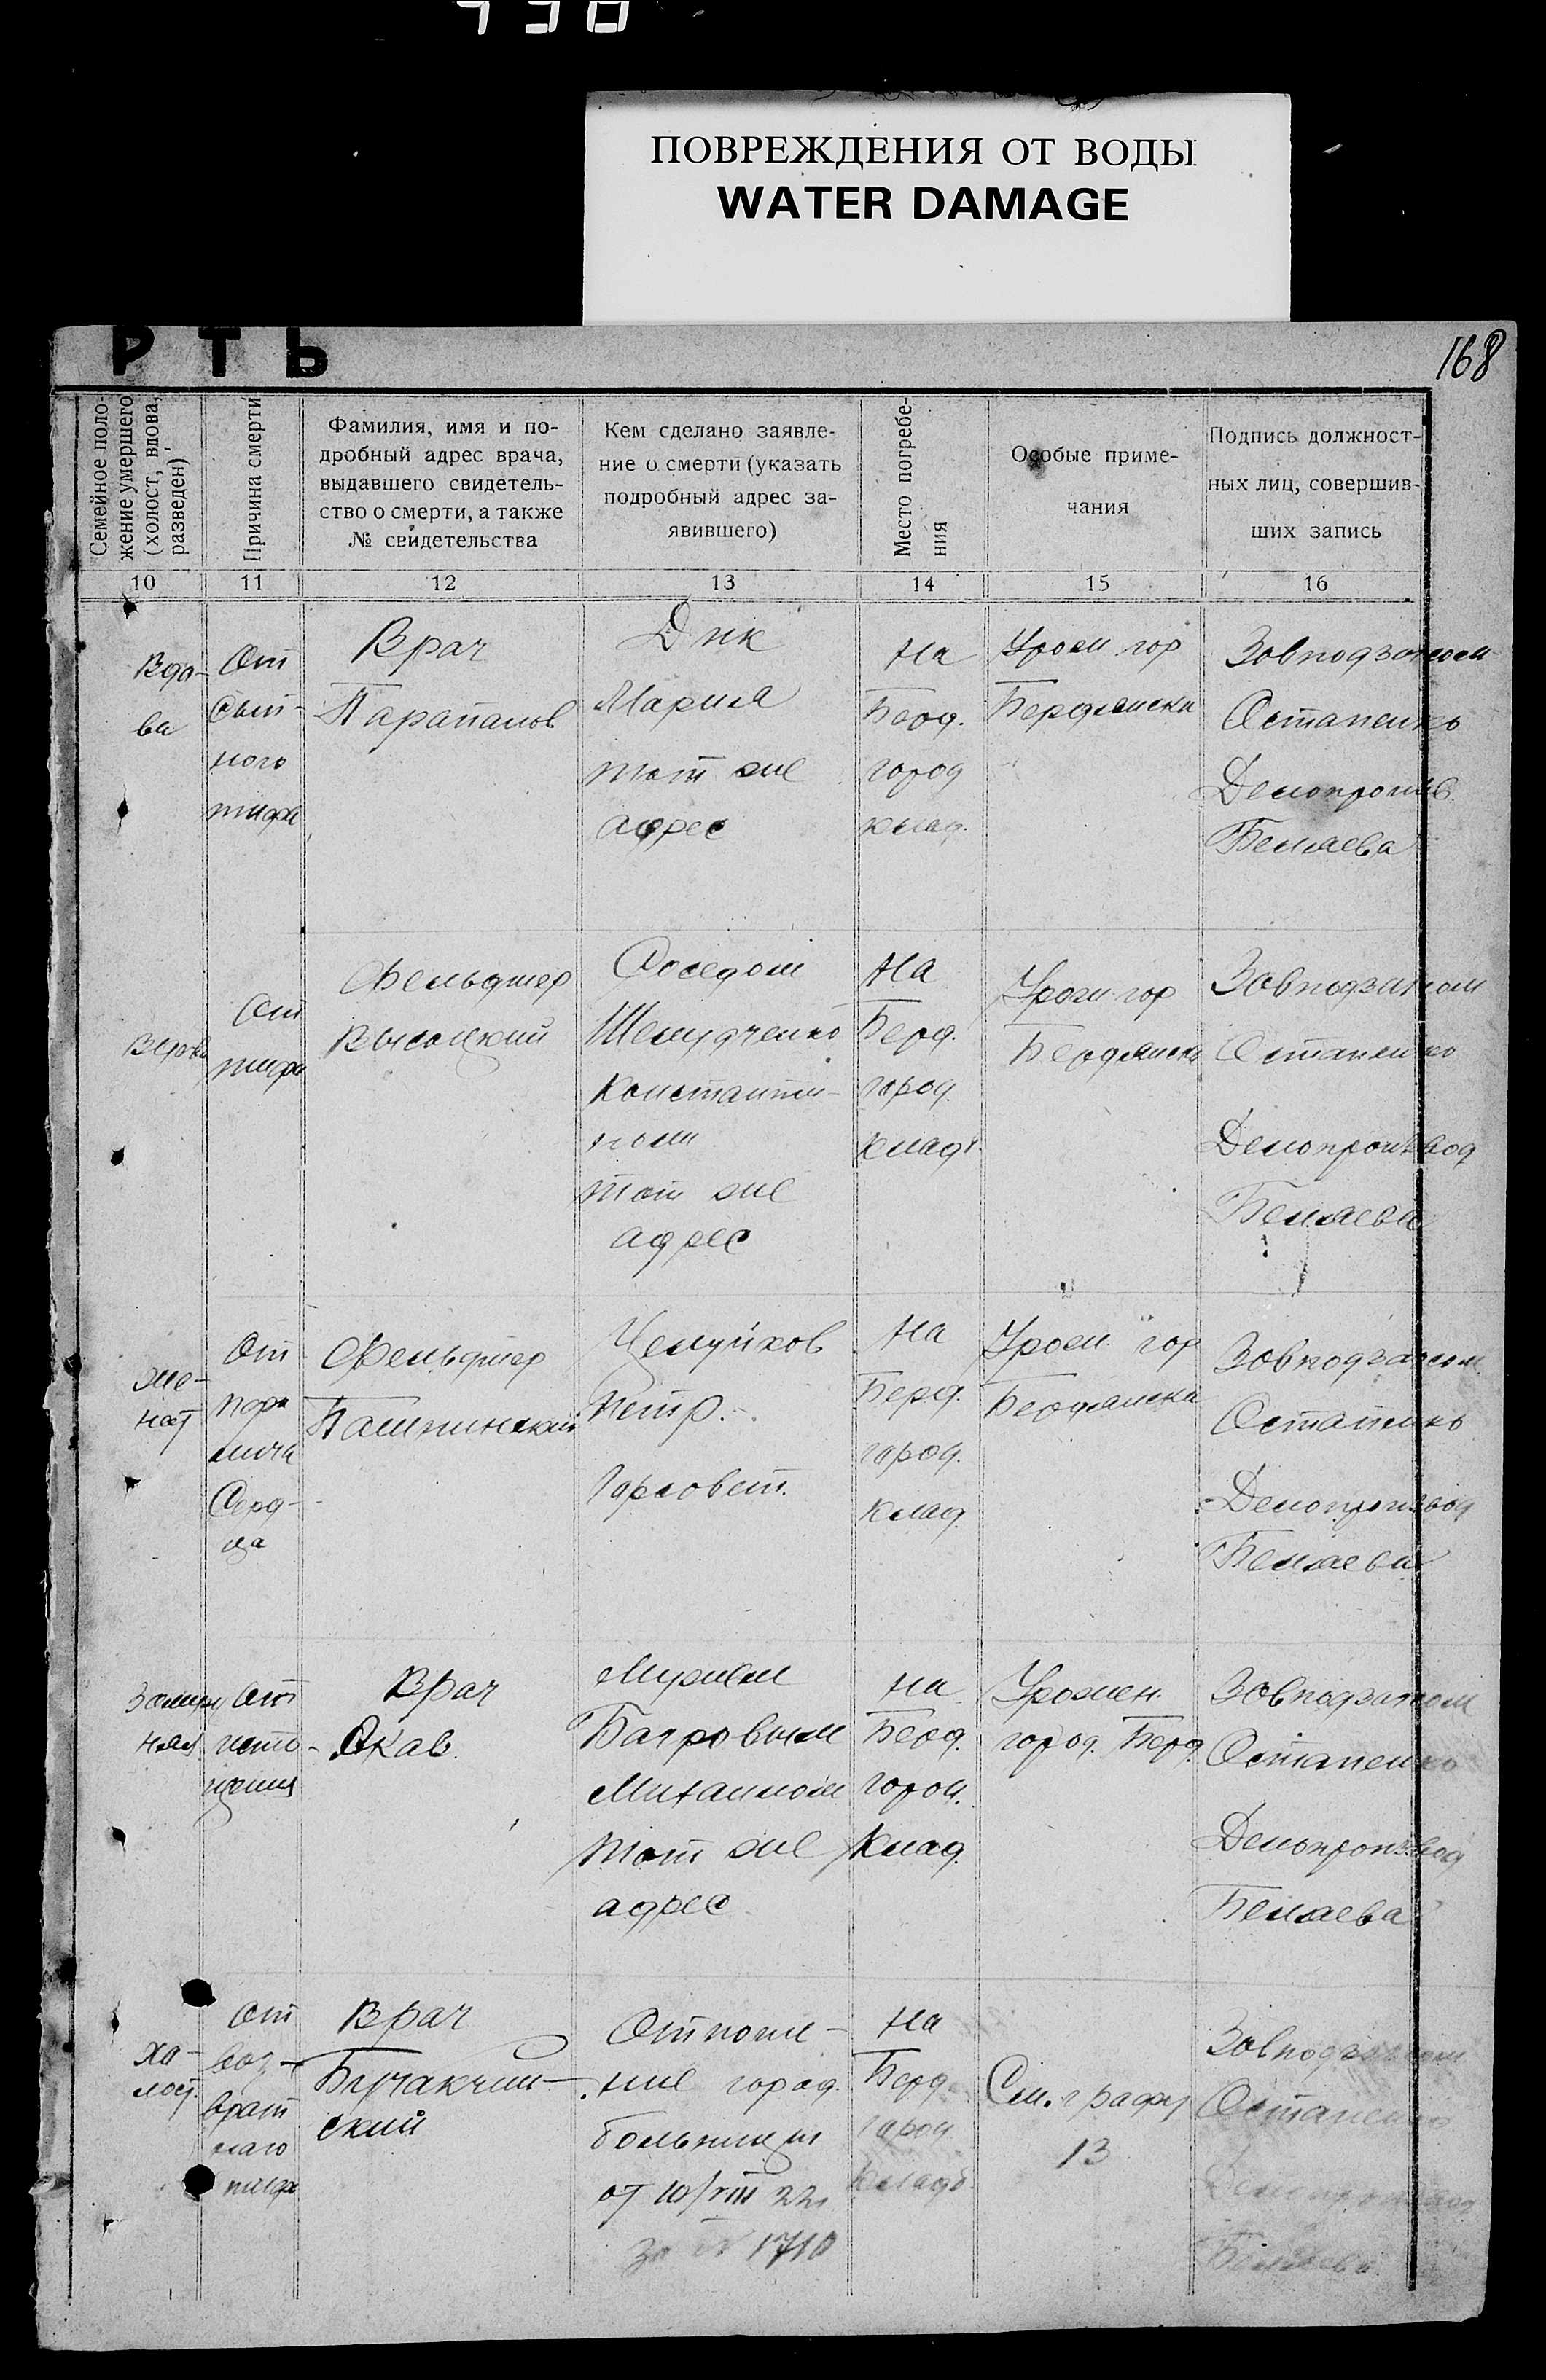 ПОВРЕЖДЕНИЯ ОТ ВОДЫ
WATER DAMAGE
РТЬ
168
Семейное поло-
жение умершего
(холост, вдова,
разведен)
Причина смерти
Фамилия, имя и по-
дробный адрес врача,
выдавшего свидетель-
ство о смерти, а также
№ свидетельства
Кем сделано заявле-
ние о смерти (указать
подробный адрес за-
явившего)
Место погребе-
ния
Особые приме-
чания
Подпись должност-
ных лиц, совершив-
ших запись
10
11
12
13
14
15
16
Вдо-
ва
От
сып-
ного
тифа
Врач
Парапанов
Мария
тот же
адрес
На
Берд.
город
клад.
Уром гор
Бердянска
Завподзагсом
Остапенко
Делопроизв.
Беляева
От
тифа
Фельдшер
Высоцкий
Соседом
Шелудченко
Константи-
ном
тот же
адрес
На
Берд.
город.
клад.
Уром гор
Бердянска
Завподзагсом
Остапенко
Делопроизвод
Беляева
же-
нат
От
пара
лича
Серд-
ца
Фельдшер
Целуйков
Петр.
Горсовет.
На
Берд.
город.
клад.
Уром. гор
Бердянска
Завподзагсом
Остапенко
Делопроизвод
Беляева
Замуж
няя
От
исто-
щения
Врач
Скав.
Мужем
Багровым
Михаилом
тот же
адрес
На
Берд.
город.
Клад.
Уромен.
город. Берд.
Завподзагсом
Остапенко
Делопроизвод
Беляева
хо-
лост.
От
воз-
врат
наго
тифа
Врач
Бучакчий-
ский
Отноше-
ние город.
больницы
от 10/VIII 22
за № 1710
На
Берд.
город
кладб.
См. графу
13
Завподзагсом
Остапенко
Делопроизвод
Беляева